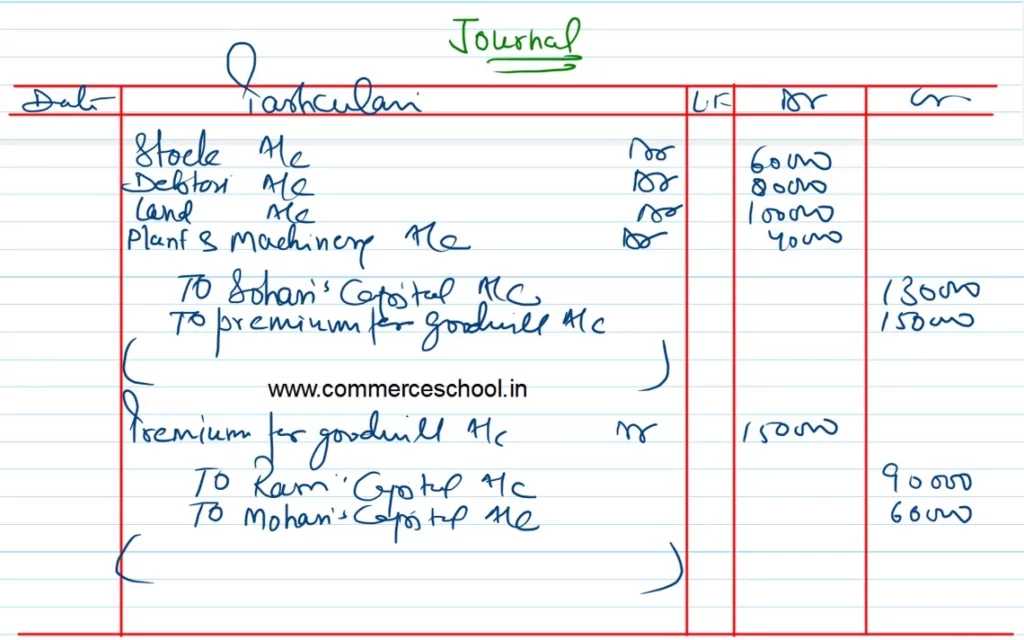 Journal
Date Particulars L.F Dr Cr
Stock A/c Dr 60000
Debtors A/c Dr 80000
Land A/c Dr 100000
Plant & Machinery A/c Dr 40000
To Sohan's Capital A/c 130000
To premium for goodwill A/c 150000
( )
www.commerceschool.in
Premium for goodwill A/c Dr 150000
To Ram's Capital A/c 90000
To Mohan's Capital A/c 60000
( )